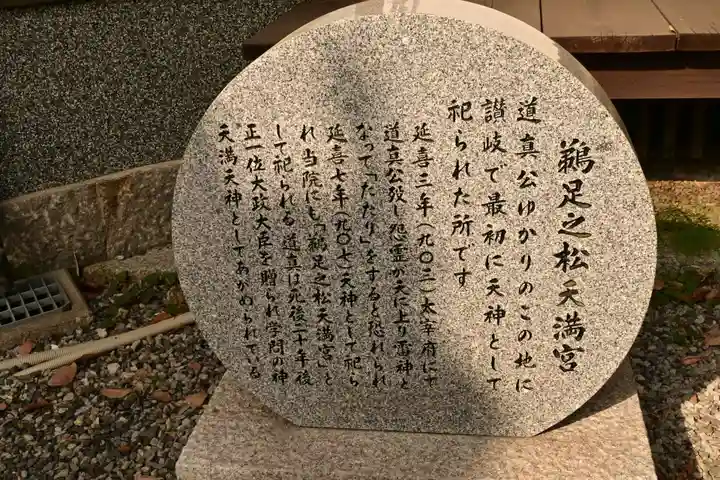 鵜足之松天満宮
道真公ゆかりのこの地に
讃岐で最初に天神として
祀られた所です
延喜三年(九〇三)太宰府にて
道真公歿し怨霊が天に上り雷神と
なって「たたり」をすると恐れられ
延喜七年(九〇七)天神として祀ら
れ当院にも「鵜足之松天満宮」と
して祀られる 道真は死後二十年後
正一位大政大臣を贈られ学問の神
天満天神としてあがめられている